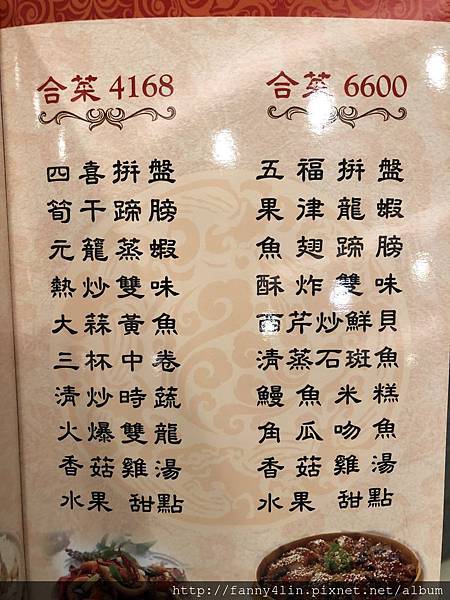 合菜 4168
四喜拼盤
筍干蹄膀
元籠蒸蝦
熱炒雙味
大蒜黃魚
三杯中卷
清炒時蔬
火爆雙龍
香菇雞湯
水果 甜點
合菜 6600
五福拼盤
果律龍蝦
魚翅蹄膀
酥炸雙味
西芹炒鮮貝
清蒸石斑魚
鰻魚米糕
角瓜吻魚
香菇雞湯
水果 甜點
http://fanny4lin.pixnet.net/album